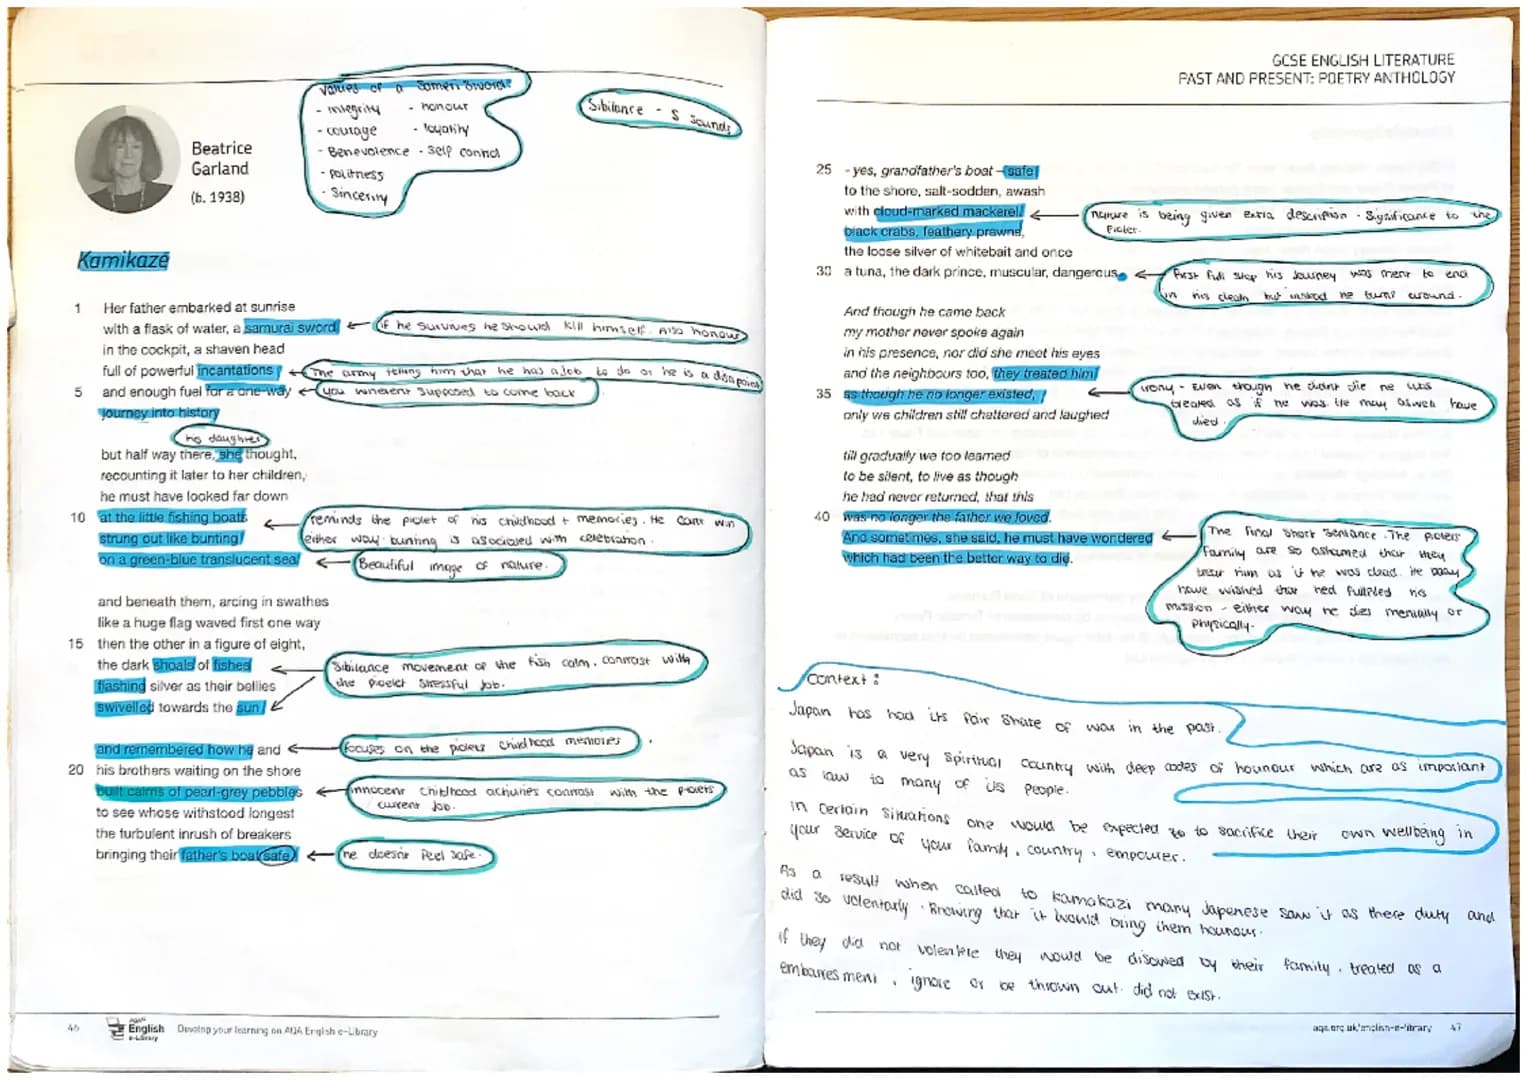 values of a Sameri Sword?
- integrity - honour
- courage - loyality
- Benevolence - self control
- politness
- Sincerity
Sibilance - S Sounds
Beatrice
Garland
(b. 1938)
Kamikaze
1 Her father embarked at sunrise
with a flask of water, a samurai sword
if he survives he should kill himself. Also honour
in the cockpit, a shaven head
full of powerful incantations
The army telling him that he has a job to do or he is a disapoint
5 and enough fuel for a one-way
you wherent supposed to come back
journey into history
his daughter
but half way there, she thought,
recounting it later to her children,
he must have looked far down
10 at the little fishing boats
strung out like bunting
on a green-blue translucent sea
reminds the piolet of his childhood + memories. He cant win
either way. bunting is asociated with celebration.
Beautiful image of nature.
and beneath them, arcing in swathes
like a huge flag waved first one way
15 then the other in a figure of eight,
the dark shoals of fishes
flashing silver as their bellies
swivelled towards the sun
Sibilance movement of the fish calm. contrast with
the piolet stressful job.
and remembered how he and
focuses on the piolets childhood memories
20 his brothers waiting on the shore
built cairns of pearl-grey pebbles
innocent childhood activities contrast with the piolets
current job.
to see whose withstood longest
the turbulent inrush of breakers
bringing their father's boat safe,
he doesnt feel safe.
46
AQA
English
e-Library
Develop your learning on AQA English e-Library
GCSE ENGLISH LITERATURE
PAST AND PRESENT: POETRY ANTHOLOGY
25 - yes, grandfather's boat – safe
to the shore, salt-sodden, awash
with cloud-marked mackerel,
black crabs, feathery prawns,
nature is being given extra description. Significance to the
Piolet.
the loose silver of whitebait and once
30 a tuna, the dark prince, muscular, dangerous.
First full stop his journey was ment to end
in his death but instead he turnd around.
And though he came back
my mother never spoke again
in his presence, nor did she meet his eyes
and the neighbours too, they treated him
35 as though he no longer existed,
irony - Even though he didnt die he was
treated as if he was. He may aswell have
died.
only we children still chattered and laughed
till gradually we too learned
to be silent, to live as though
he had never returned, that this
40 was no longer the father we loved.
And sometimes, she said, he must have wondered
which had been the better way to die.
The final short sentance. The piolets
family are so ashamed that they
treat him as if he was dead. He
have wished that hed fullfiled his
mission - either way he dies mentally or
physically.
Context:
Japan has had its fair share of war in the past.
Japan is a very spiritual country with deep codes of hounour which are as important
as law to many of its people.
in certain situations one would be expected to to sacrifice their own wellbeing in
your service of your family, country, empourer.
As a result when called to kamakazi many Japenese saw it as there duty and
did so volentarly. Knowing that it would bring them hounour.
if they did not volentere they would be disowed by their family, treated as a
embarresment, ignore or be thrown out. did not exist.
aqa.org.uk/english-e-library 47